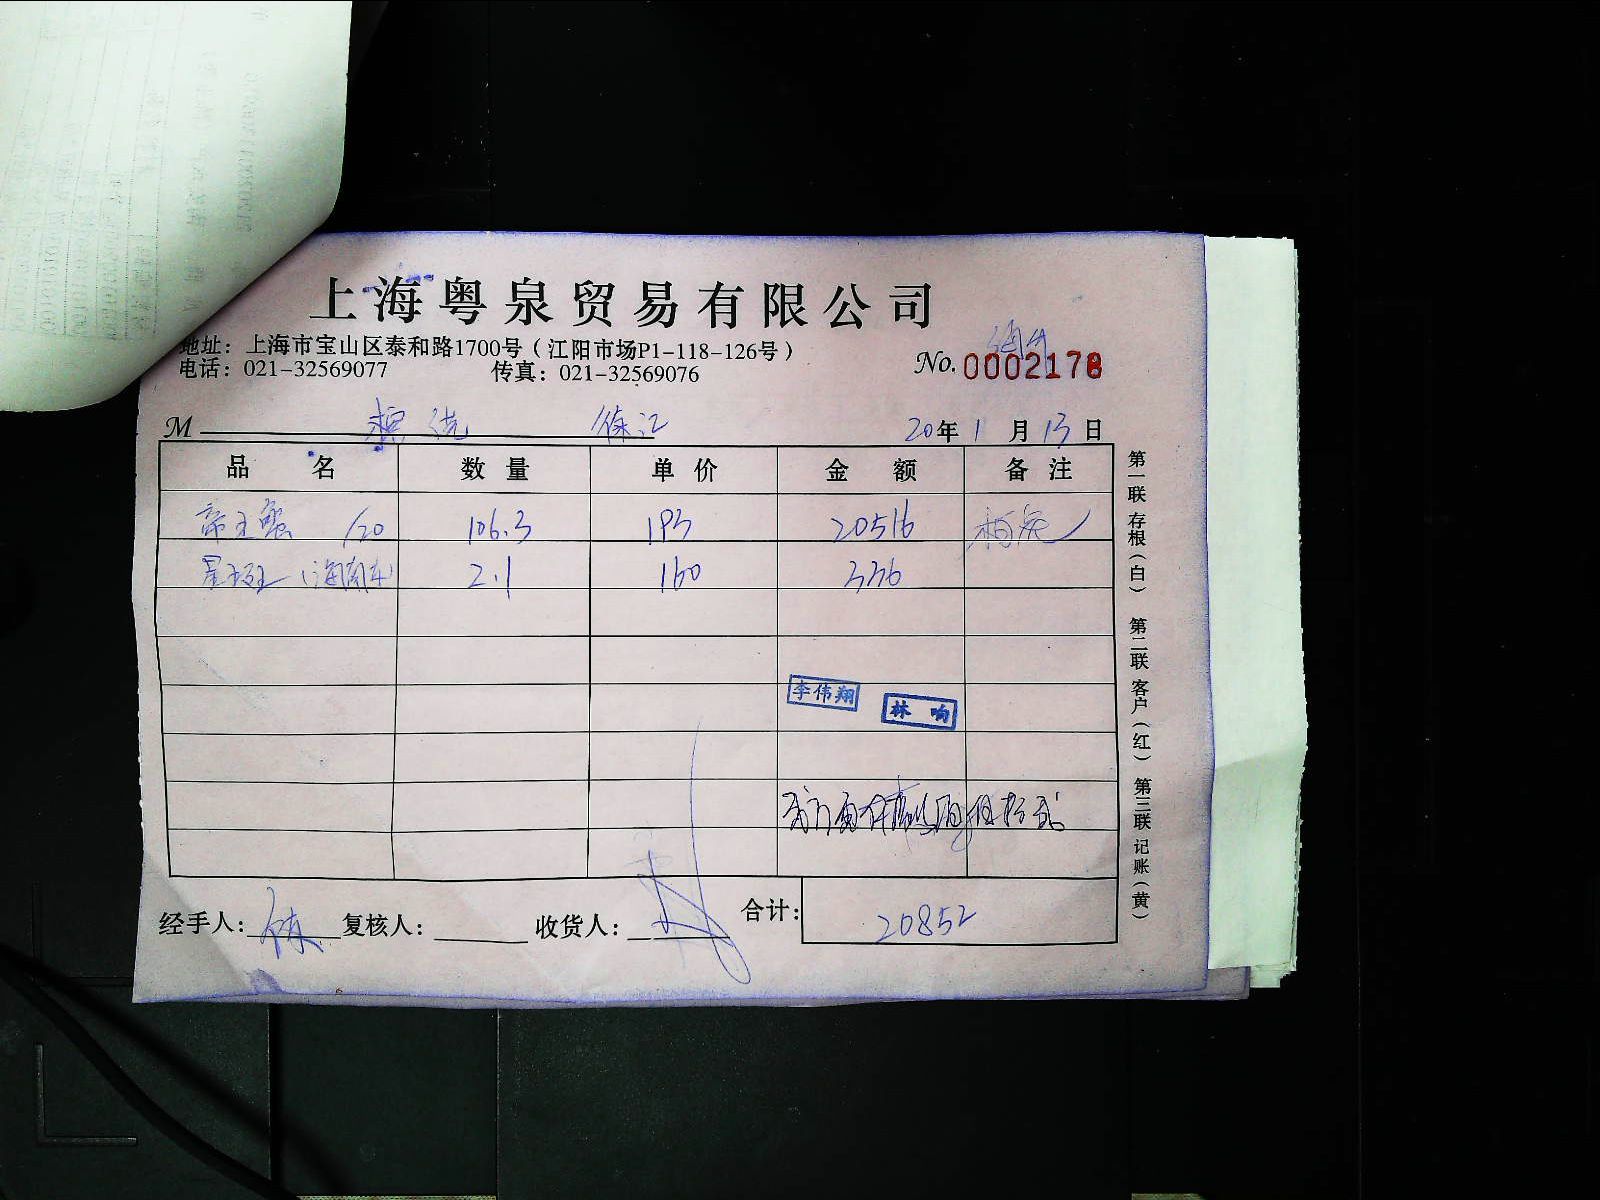 上海粤泉贸易有限公司
地址：上海市宝山区泰和路1700号（江阳市场P1-118-126号）
电话：021-32569077 传真：021-32569076
No. 0002178
M 徐汇 20年1月13日
品名 数量 单价 金额 备注
帝王蟹 /20 106.3 193 20516
星斑（海南车） 2.1 160 336
李伟翔 林响
经手人： 复核人： 收货人： 合计： 20852
第一联 存根（白） 第二联 客户（红） 第三联 记账（黄）